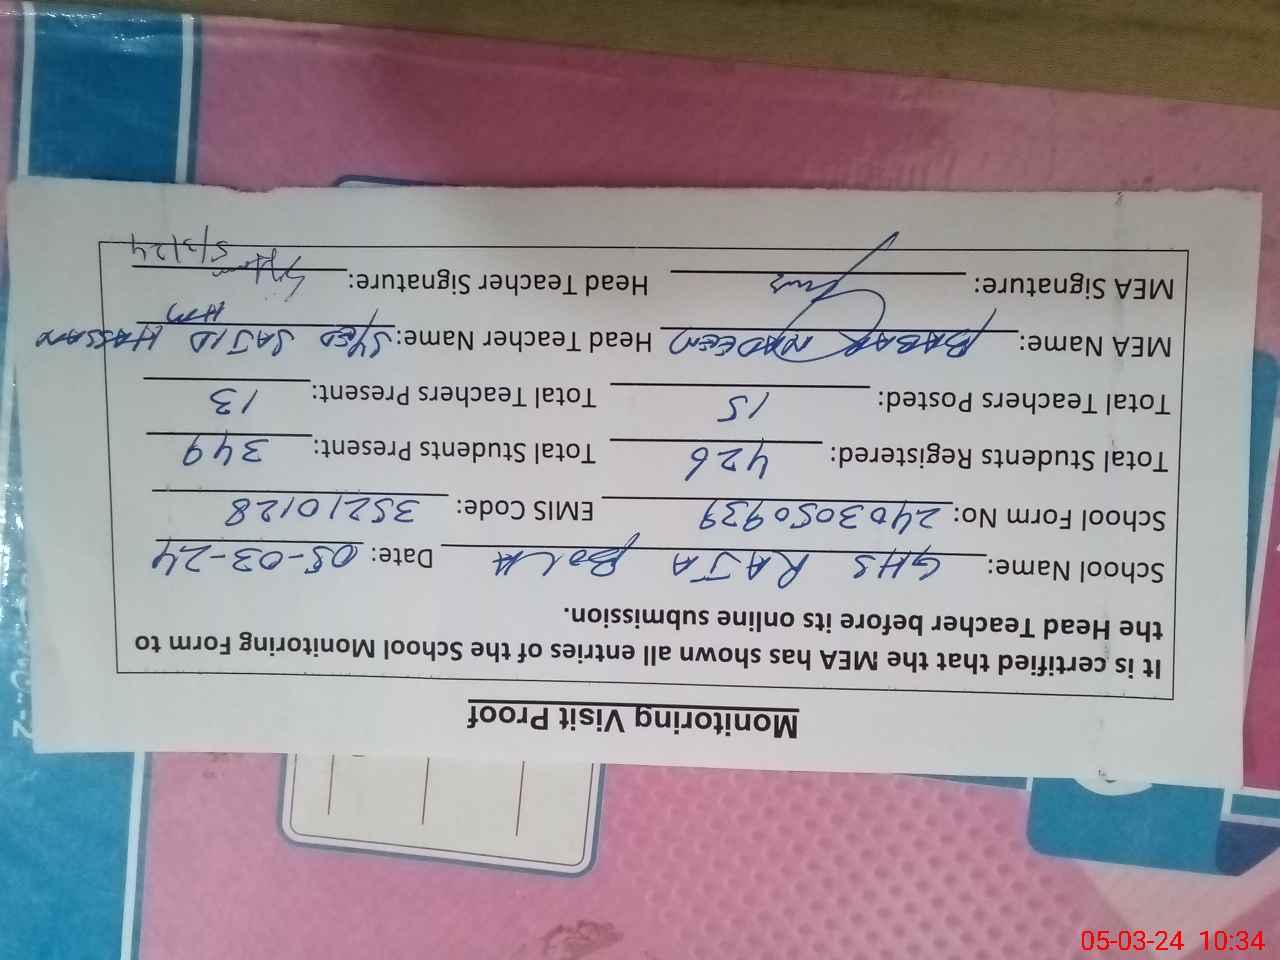 Monitoring Visit Proof
It is certified that the MEA has shown all entries of the School Monitoring Form to
the Head Teacher before its online submission.
School Name: GHS RAJA BOLA Date: 05-03-24
School Form No: 2403050939 EMIS Code: 35210128
Total Students Registered: 426 Total Students Present: 349
Total Teachers Posted: 15 Total Teachers Present: 13
MEA Name: BABAR NADEEM Head Teacher Name: SYED SAJID HASSAN
HM
MEA Signature: Head Teacher Signature:
5/3/24
05-03-24 10:34